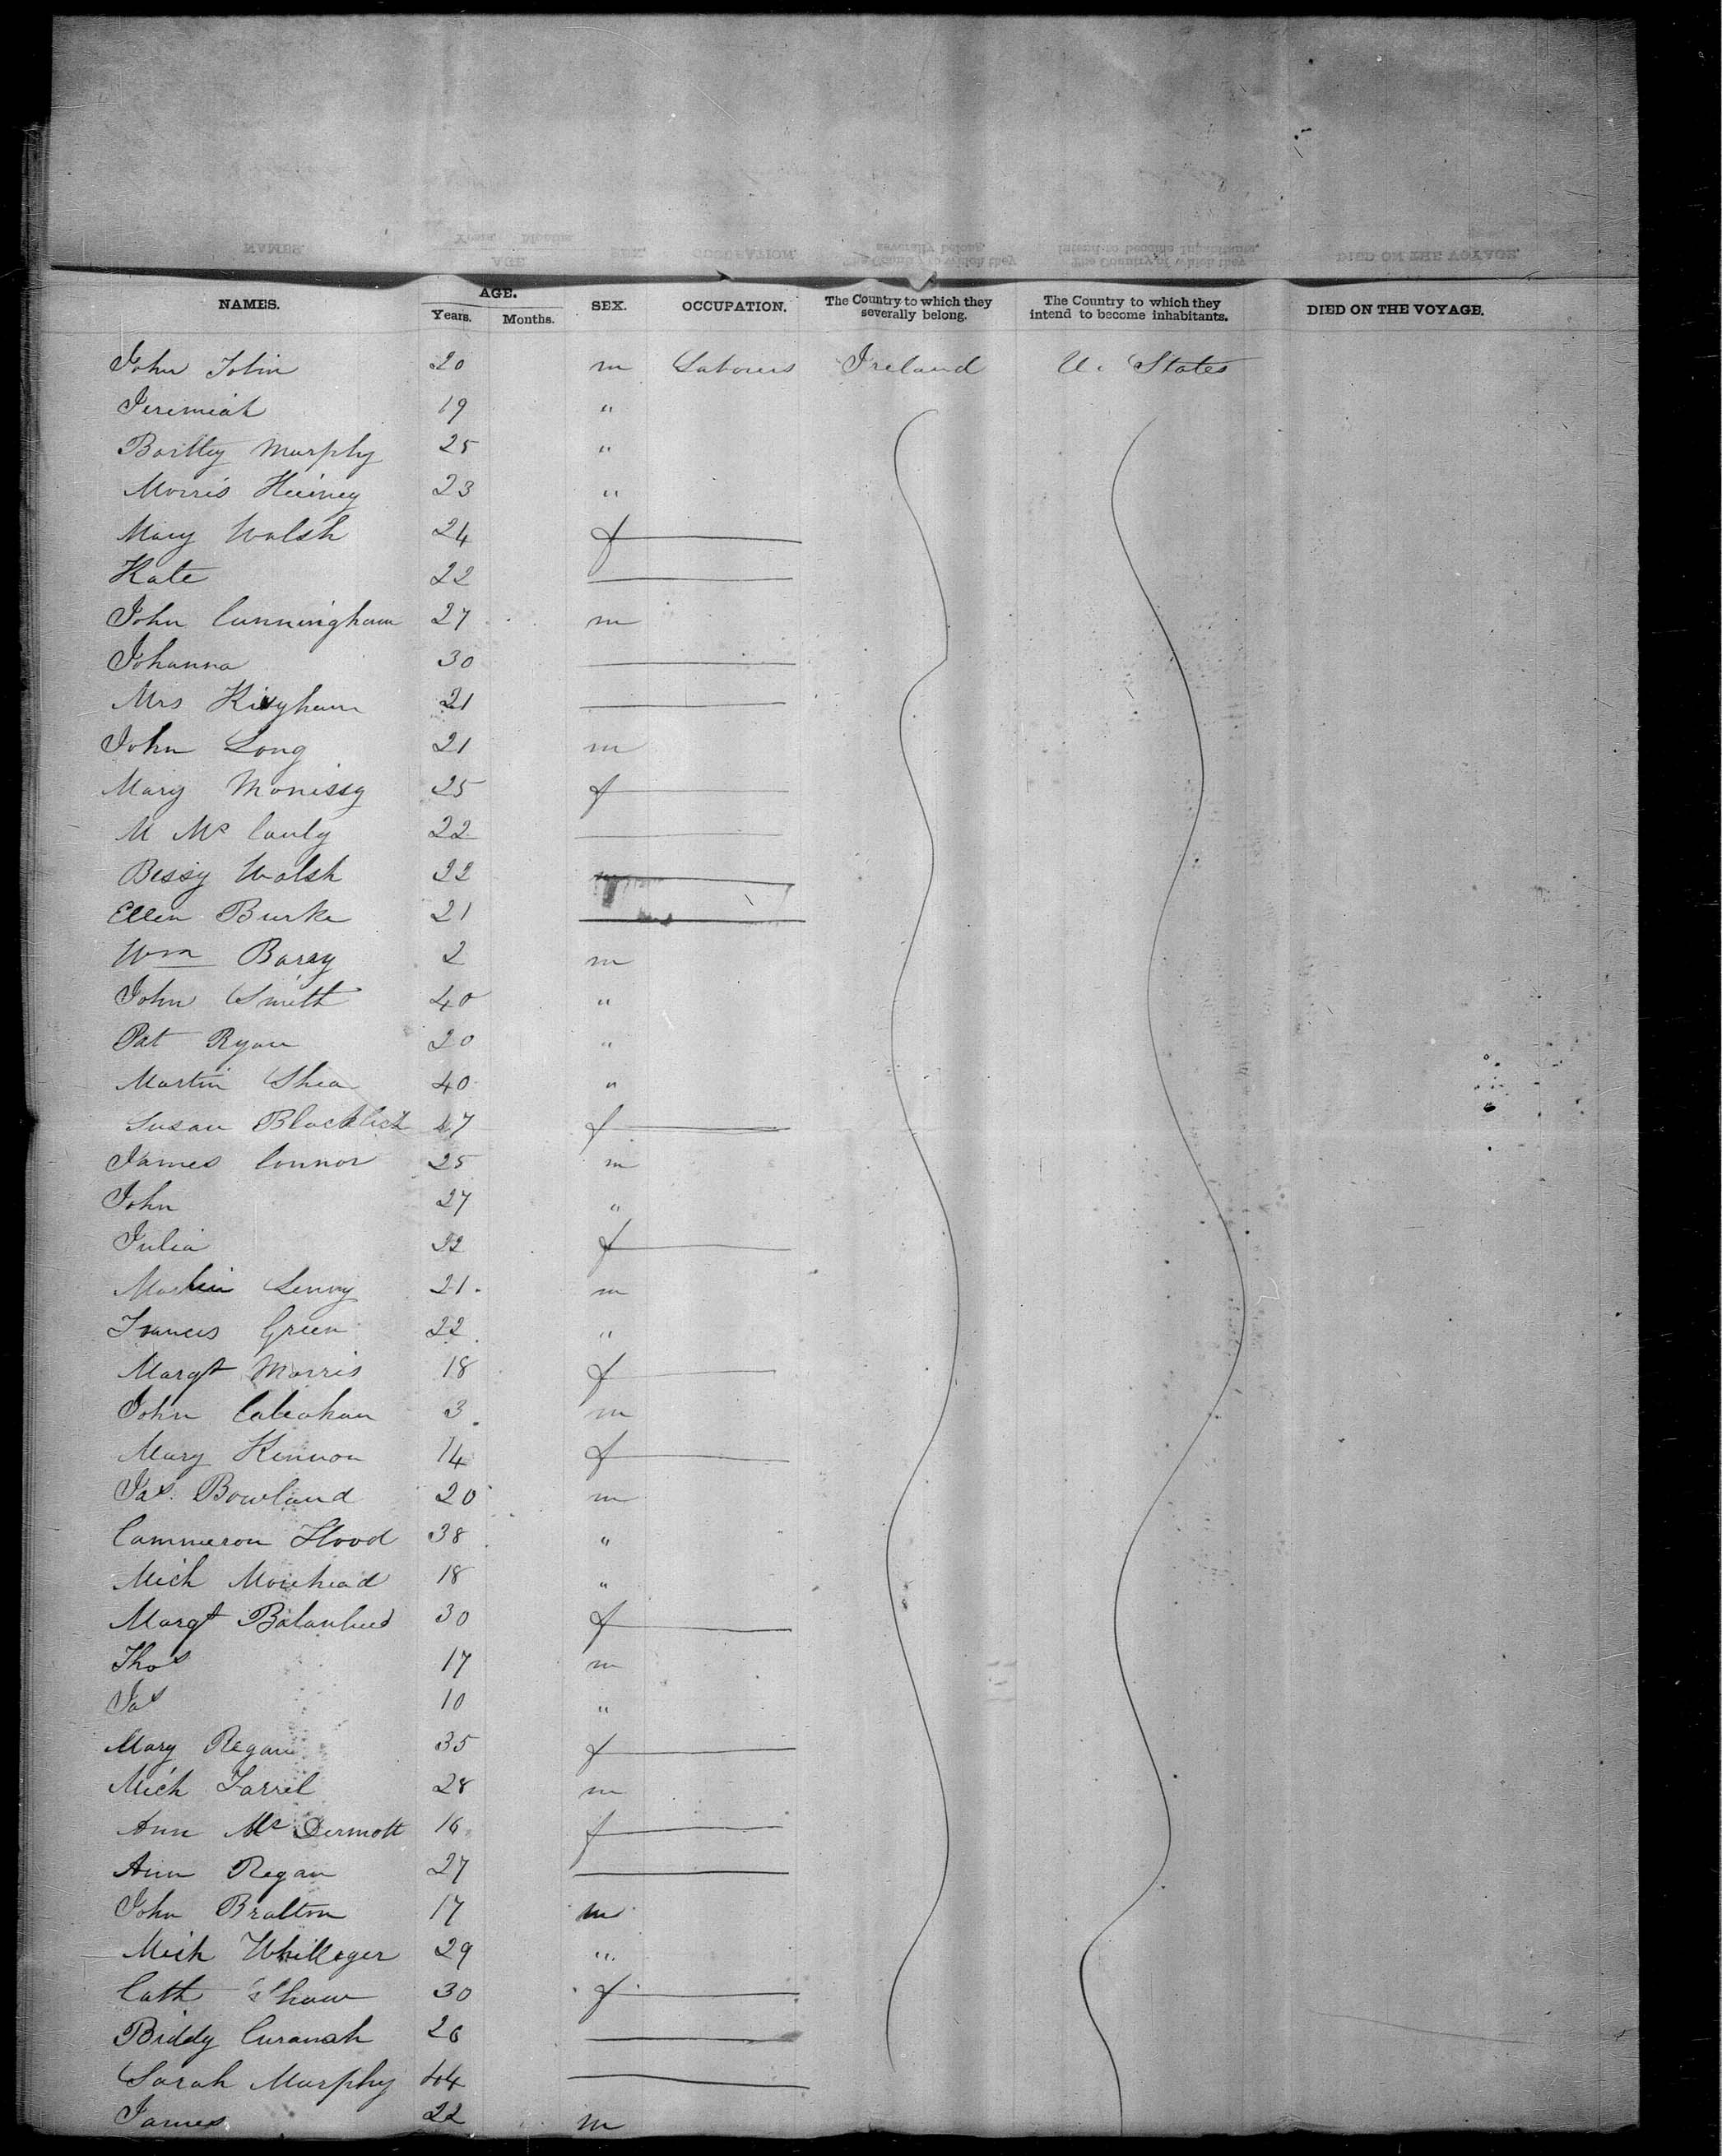 NAMES. AGE. SEX. OCCUPATION. The Country to which they severally belong. The Country to which they intend to become inhabitants. DIED ON THE VOYAGE.
Years. Months.
John Tobin 20 m Laborers Ireland U. States
Jeremiah 19 "
Bartley Murphy 25 "
Morris 23 "
Mary Walsh 24 f
Kate 22
John Cunningham 27 m
Johanna 30
Mrs 21
John Long 21 m
Mary 25 f
M Mc Cauly 22
Bessy Walsh 22
Ellen Burke 21
Wm Barry 2 m
John Smith 40 "
Pat Ryan 20 "
Martin Shea 40 "
Susan 47 f
James Connor 25 m
John 27 "
Julia 22 f
Martin 21 m
Francis Green 22 "
Margt Morris 18 f
John Caleahan 3 m
Mary Kennon 14 f
Jas. Bowland 20 m
Cammeron Flood 38 "
Mich Morehead 18 "
Margt 30 f
Thos 17 m
Jas 10 "
Mary Regan 35 f
Mich Farrel 28 m
Ann Mc Dermott 16 f
Ann Regan 27
John Bralton 17 m
Mich 29 "
Cath Shaw 30 f
Biddy 26
Sarah Murphy 44
James 22 m